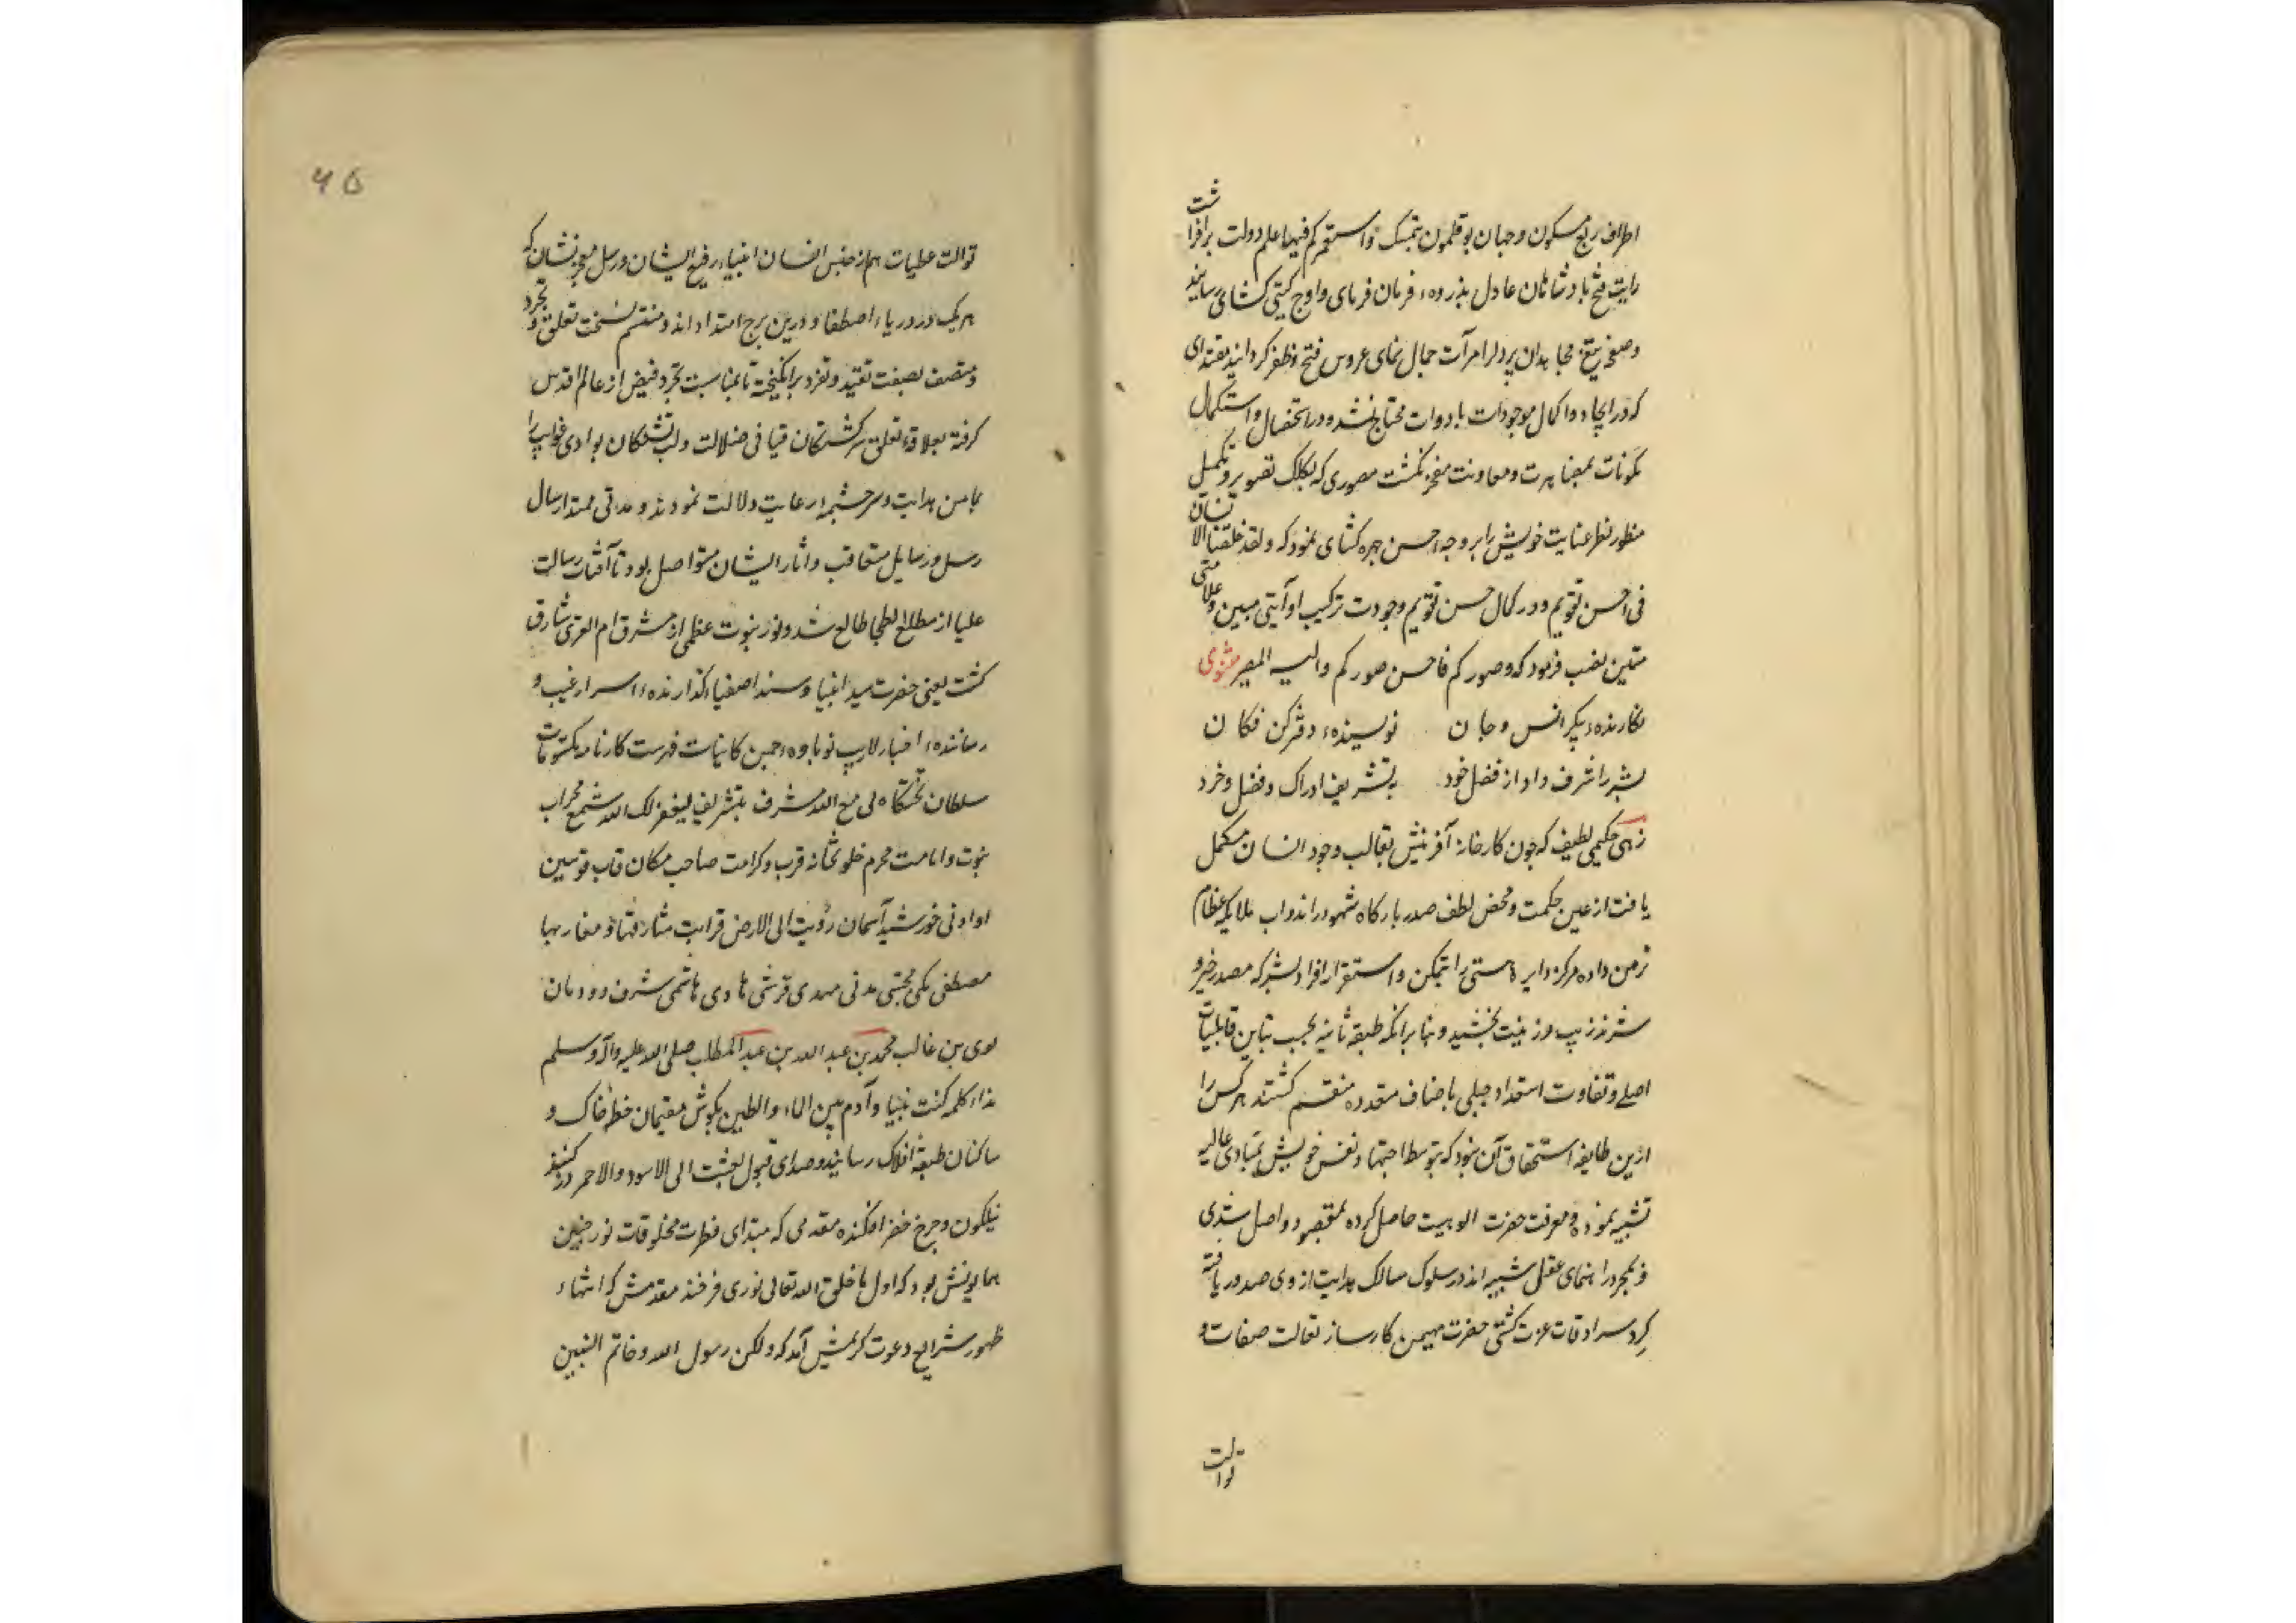 اطراف ربع مسکون و جهان بوقلمون بتمسک و استعمرکم فیها علم دولت برافراشت
رایت فتح بادشاهان عادل بذروهء فرمان فرمای و اوج کیتی کشای رسانید
و صفحهٔ تیغ مجاهدان پردل را مرآت جمال نمای عروس فتح و ظفر کردانید مقتدای
که در ایجاد و اکمال موجودات بادوات محتاج نشده و در استحصال و استکمال
مکونات بمضاهرت و معاونت مفخر نکشت مصوری که بکلک تصویر و تکمیل
منظور نظر عنایت خویش را بر وجه احسن چهره کشای نمود که و لقد خلقنا الانسان
فی احسن تقویم و در کمال حسن تقویم وجودت ترکیب او آیتی مبین و علامتی
متین نصب فرمود که و صورکم فاحسن صورکم و الیه المصیر مثنوی
نکارندهء پیکر انس و جان نویسندهء دفتر کن فکان
بشر را شرف داد از فضل خود بتشریف ادراک و فضل و خرد
زهی حکیمی لطیف که چون کارخانهٔ آفرینش بقالب وجود انسان مکمل
یافت از عین حکمت و محض لطف صدر بارکاه شهود را ندواب ملایکه عظام
تزمن داده مرکز دایرهٔ هستی را بتمکن و استقرار افراد بشر که مصدر خیر و
شرند زیب و زینت بخشید و بنا بر آنکه طبقه ثانیه بحسب تباین قابلیات
اصلی و تفاوت استعداد جبلی باصناف متعدده منقسم کشتند هر کس را
ازین طایفه استحقاق آن نبود که بتوسط اجتهاد نفس خویش بمبادی عالیه
تشبیه نموده و معرفت حضرت الوهیت حاصل کرده بمقصود واصل شدی
و بمجرد راهنمای عقل شبیه اند در سلوک مسالک هدایت از وی صدور یافته
کرد سرادقات عزت کشتی حضرت مهیمن کارساز تعالت صفات و
توالت
توالت عطیات هم از جنس انسان انبیاء رفیع الیشان و رسل معجز نشان که
هر یک در دریاء اصطفا و درین برج اهتدااند و منتسم بسمت تعلق و تجرد
و متصف بصفت تقید و تفرد برانکیخته تا بمناسبت تجرد فیض از عالم اقدس
کرفته بعلاقهٔ تعلق سرکشتکان فیافی ضلالت و لب تشنکان بوادی غوایت را
بامن هدایت و سرچشمهٔ رعایت دلالت نمودند و مدتی ممتد ارسال
رسل و رسایل متعاقب و آثار ایشان متواصل بود تا آفتاب رسالت
علیا از مطلع بطحا طالع شد و نور نبوت عظمی از مشرق ام القری شارق
کشت یعنی حضرت سید انبیا و سند اصفیا کذارندهء اسرار غیب و
رسانندهء اخبار لاریب نوباوهء چمن کاینات فهرست کارنامه مکتوبات
سلطان تختکاه لی مع الله مشرف بتشریف لیغفر لک الله شمع محراب
نبوت و امامت محرم خلوتخانه قرب و کرامت صاحب مکان قاب قوسین
او ادنی خورشید آسمان زویت الی الارض فرایت مشارقها و مغاربها
مصطفی مکی مجتبی مدنی مهدی قرشی هادی هاشمی شرف دودمان
لوی بن غالب محمد بن عبد الله بن عبد المطلب صلی الله علیه و آله و سلم
نداء کلمه کنت نبیا و آدم بین الماء و الطین بکوش مقیمان خطهٔ خاک و
ساکنان طبقهٔ افلاک رسانید و صدای قبول بعثت الی الاسود و الاحمر در کنبذ
نیلکون و چرخ خضرا فکنده مقدمی که مبتدای فطرت مخلوقات نور جبین
همایونش بود که اول ما خلق الله تعالی نوری فرخنده مقدمش که انتهاء
ظهور شرایع دعوت کریمش آمد که ولکن رسول الله و خاتم النبیین